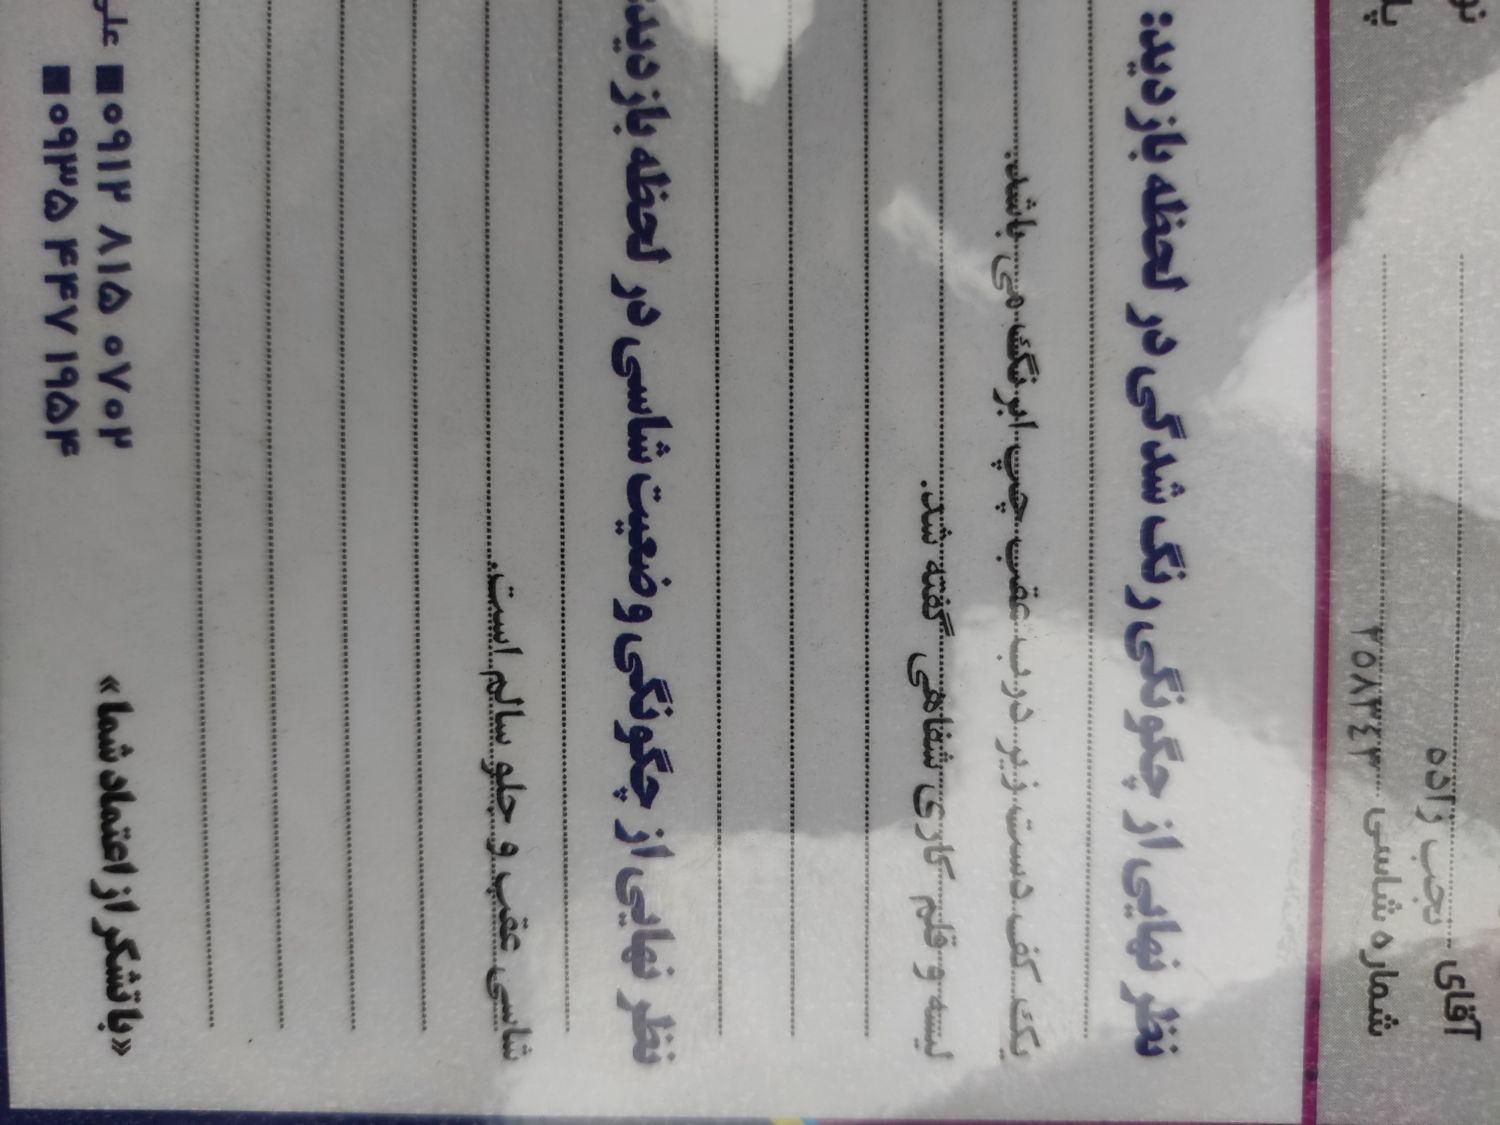 آقای نجب زاده
شماره شاسی ۲۵۸۳۴۴۳
نظر نهایی از چگونگی رنگ شدگی در لحظه بازدید:
یک کف دست زیر درب عقب چپ ابرنگ می باشد.
لیسه و قلم کاری شفاهی گفته شد.
نظر نهایی از چگونگی وضعیت شاسی در لحظه بازدید:
شاسی عقب و جلو سالم است.
«با تشکر از اعتماد شما»
۰۹۱۲ ۸۱۵ ۰۷۰۲ ■ علی
۰۹۳۵ ۴۴۷ ۱۹۵۴ ■